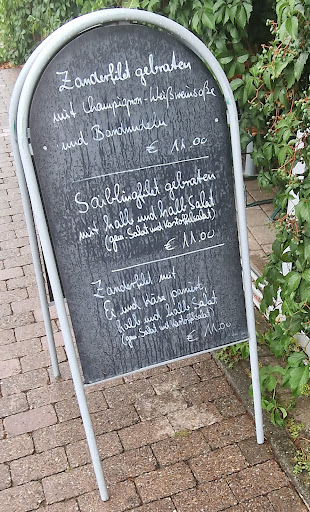 Zanderfilet gebraten
mit Champignon-Weißweinsoße
und Bandnudeln
€ 11.00
Saiblingfilet gebraten
mit halb und halb Salat
(gem. Salat und Kartoffelsalat)
€ 11.00
Zanderfilet mit
Ei und Käse paniert,
halb und halb Salat
(gem. Salat und Kartoffelsalat)
€ 11.00